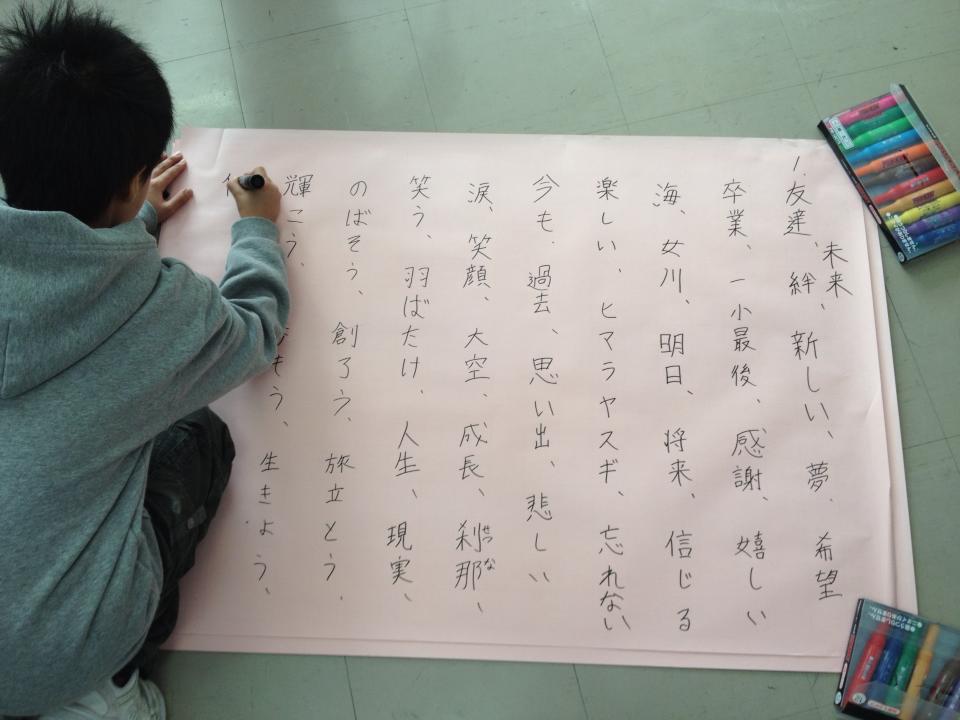 未来
1.友達、絆、新しい、夢、希望
卒業、一小最後、感謝、嬉しい
海、女川、明日、将来、信じる
楽しい、ヒマラヤスギ、忘れない
今も、過去、思い出、悲しい
涙、笑顔、大空、成長、刹那、
せつな
笑う、羽ばたけ、人生、現実、
のばそう、創ろう、旅立とう、
輝こう、生きよう、